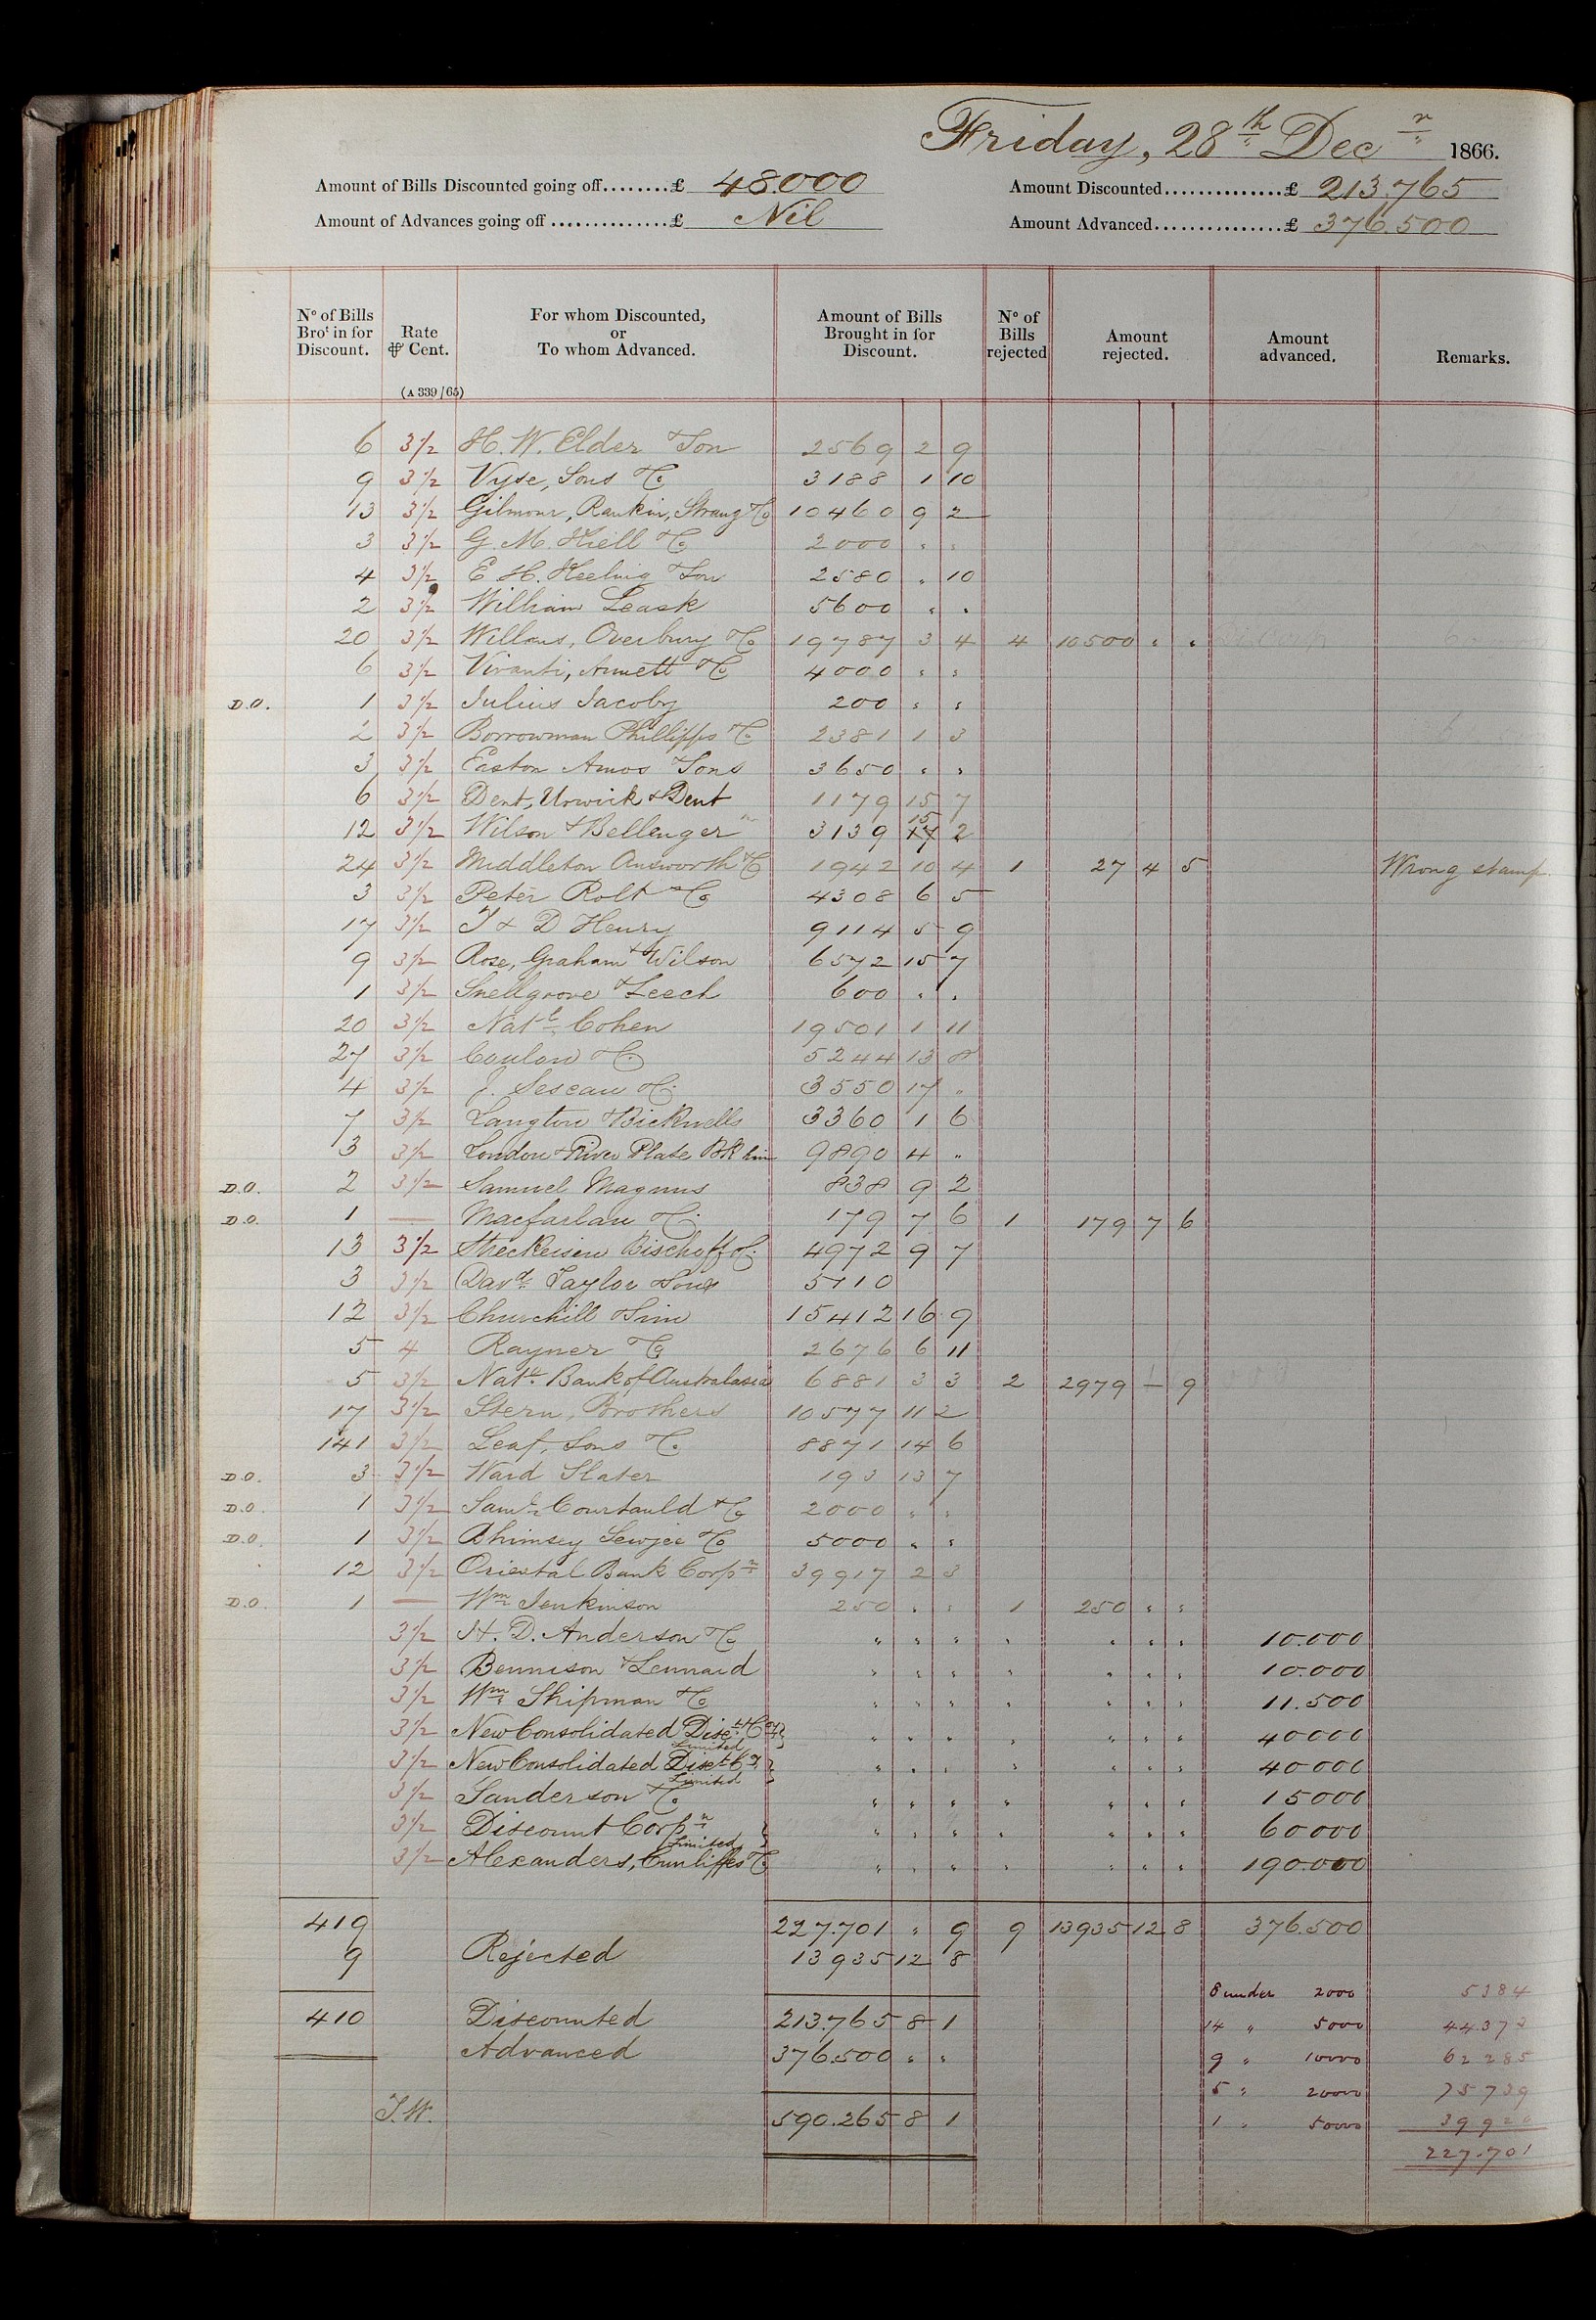 Friday, 28th Decr 1866.
Amount of Bills Discounted going off........£ 48.000 Amount Discounted..............£ 213.765
Amount of Advances going off..............£ Nil Amount Advanced................£ 376.500
No of Bills Brot in for Discount. Rate ⅌ Cent. For whom Discounted, or To whom Advanced. Amount of Bills Brought in for Discount. No of Bills rejected Amount rejected. Amount advanced. Remarks.
(A 339/65)
6 3½ H. W. Elder & Son 2569 2 9
9 3½ Vyse, Sons & Co 3188 1 10
13 3½ Gilmour, Rankin, Strang & Co 10460 9 2
3 3½ G. M. & Co 2000 " "
4 3½ E H. & Son 2580 " 10
2 3½ William Leask 5600 " "
20 3½ Willans, Overbury & Co 19787 3 4 4 10500 " "
6 3½ Vivanti, & Co 4000 " "
D.O. 1 3½ Julius Jacoby 200 " "
2 3½ Borrowman Phillipps & Co 2381 1 3
3 3½ Easton Amos & Sons 3650 " "
6 3½ Dent, Urwick & Dent 1179 15 7
12 3½ Wilson & Bellenger 3139 15 17 2
24 3½ Middleton Answorth & Co 1942 10 4 1 27 4 5 Wrong stamp.
3 3½ Peter Rolt & Co 4308 6 5
17 3½ & D Henry 9114 5 9
9 3½ Rose, Graham & Wilson 6572 15 7
1 3½ Snellgrove & Leech 600 " "
20 3½ Natl Cohen 19501 1 11
27 3½ & Co. 5244 13 8
4 3½ J. & Co. 3550 17 "
7 3½ Langton & Bicknells 3360 1 6
3 3½ London & River Plate Bk Lim 9890 4 "
D.O. 2 3½ Samuel Magnus 838 9 2
D.O. 1 — Macfarlan & Co. 179 7 6 1 179 7 6
13 3½ Bischoff & Co. 4972 9 7
3 3½ Davd Taylor & Sons 5110
12 3½ Churchill & Sim 15412 16 9
5 4 Rayner & Co 2676 6 11
5 3½ Natl Bank of Australasia 6881 3 3 2 2979 — 9
17 3½ Stern, Brothers 10577 11 2
141 3½ Leaf, Sons & Co. 8871 14 6
D.O. 3 3½ Ward Slater 193 13 7
D.O. 1 3½ Saml Courtauld & Co 2000 " "
D.O. 1 3½ Bhimsey Sewjee & Co 5000 " "
12 3½ Oriental Bank Corpn 39917 2 3
D.O. 1 — Wm Jenkinson 250 " " 1 250 " "
3½ H. D. Anderson & Co " " " " " " " 10.000
3½ Bennison & Lennard " " " " " " " 10.000
3½ Wm Shipman & Co " " " " " " " 11.500
3½ New Consolidated Disct Coy Limited } " " " " " " " 40000
3½ New Consolidated Disct Coy Limited } " " " " " " " 40000
3½ Sanderson & Co " " " " " " " 15000
3½ Discount Corpn Limited } " " " " " " " 60000
3½ Alexanders, Cunliffes & Co " " " " " " " 190.000
419 227.701 " 9 9 13935 12 8 376.500
9 Rejected 13935 12 8
8 under 2000 5384
410 Discounted 213.765 8 1
14 " 5000 44.372
Advanced 376.500 " "
9 " 10000 62285
5 " 20000 75739
J.W. 590.265 8 1
1 " 50000 39920
227.701